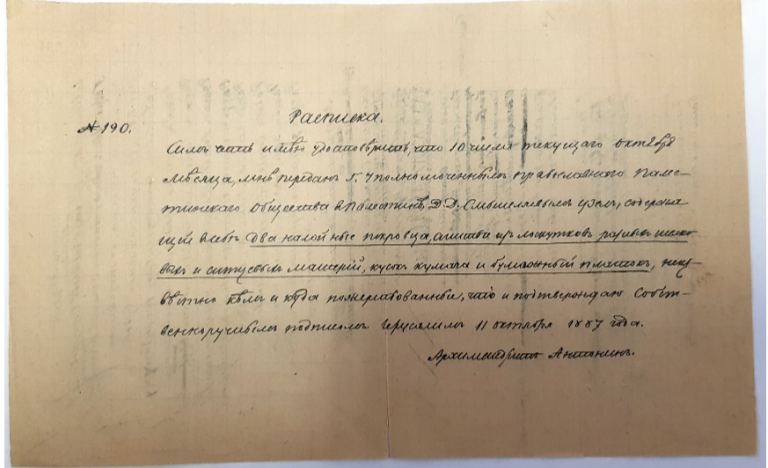 Расписка.
№ 190.
Симъ честь имѣю удостовѣрить, что 10 числа текущаго Октября
мѣсяца, мнѣ переданъ Г. Уполномоченнымъ Православнаго Палес-
тинскаго Общества въ Палестинѣ Д. Д. Смышляевымъ узелъ, содержа-
щій въ себѣ два налойные покровца, сшитые изъ лоскутковъ разныхъ шелко-
выхъ и ситцевыхъ матерій, кусокъ кумача и бумажный платокъ, неиз-
вѣстно кѣмъ и куда пожертвованные, что и подтверждаю собст-
венноручнымъ подписомъ Іерусалимъ 11 октября 1887 года.
Архимандритъ Антонинъ.